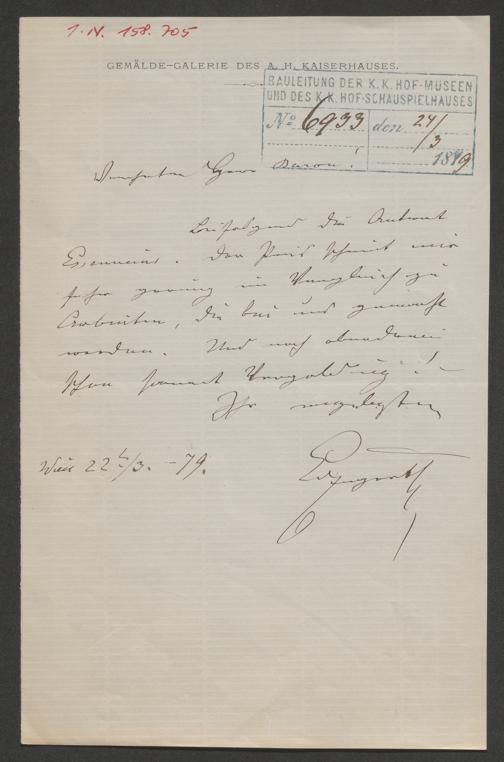 I. N. 158.705
GEMÄLDE-GALERIE DES A. H. KAISERHAUSES.
BAULEITUNG DER K. K. HOF-MUSEEN
UND DES K. K. HOF-SCHAUSPIELHAUSES
No 6933 den 24/
/3
1879
Verehrter Herr Baron!
Beifolgend die Antwort
Der Preis scheint mir
sehr gering im Vergleich zu
Arbeiten, die bei uns gemacht
werden. Und noch obendrein
schon sammt Vergoldung! –
Ihr ergebenster
Wien 22t/3. –79.
Engerth